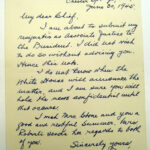 June 30, 1945.
My dear Chief,
I am about to submit my
resignation as Associate Justice to
the President. I did not wish
to do so without advising you.
Hence this note.
I do not know when the
White House will announce the
matter, and I am sure you will
hold the news confidential until
that occurs.
I wish Mrs Stone and you a
good and restful summer. Mrs
Roberts sends her regards to both
of you.
Sincerely yours,